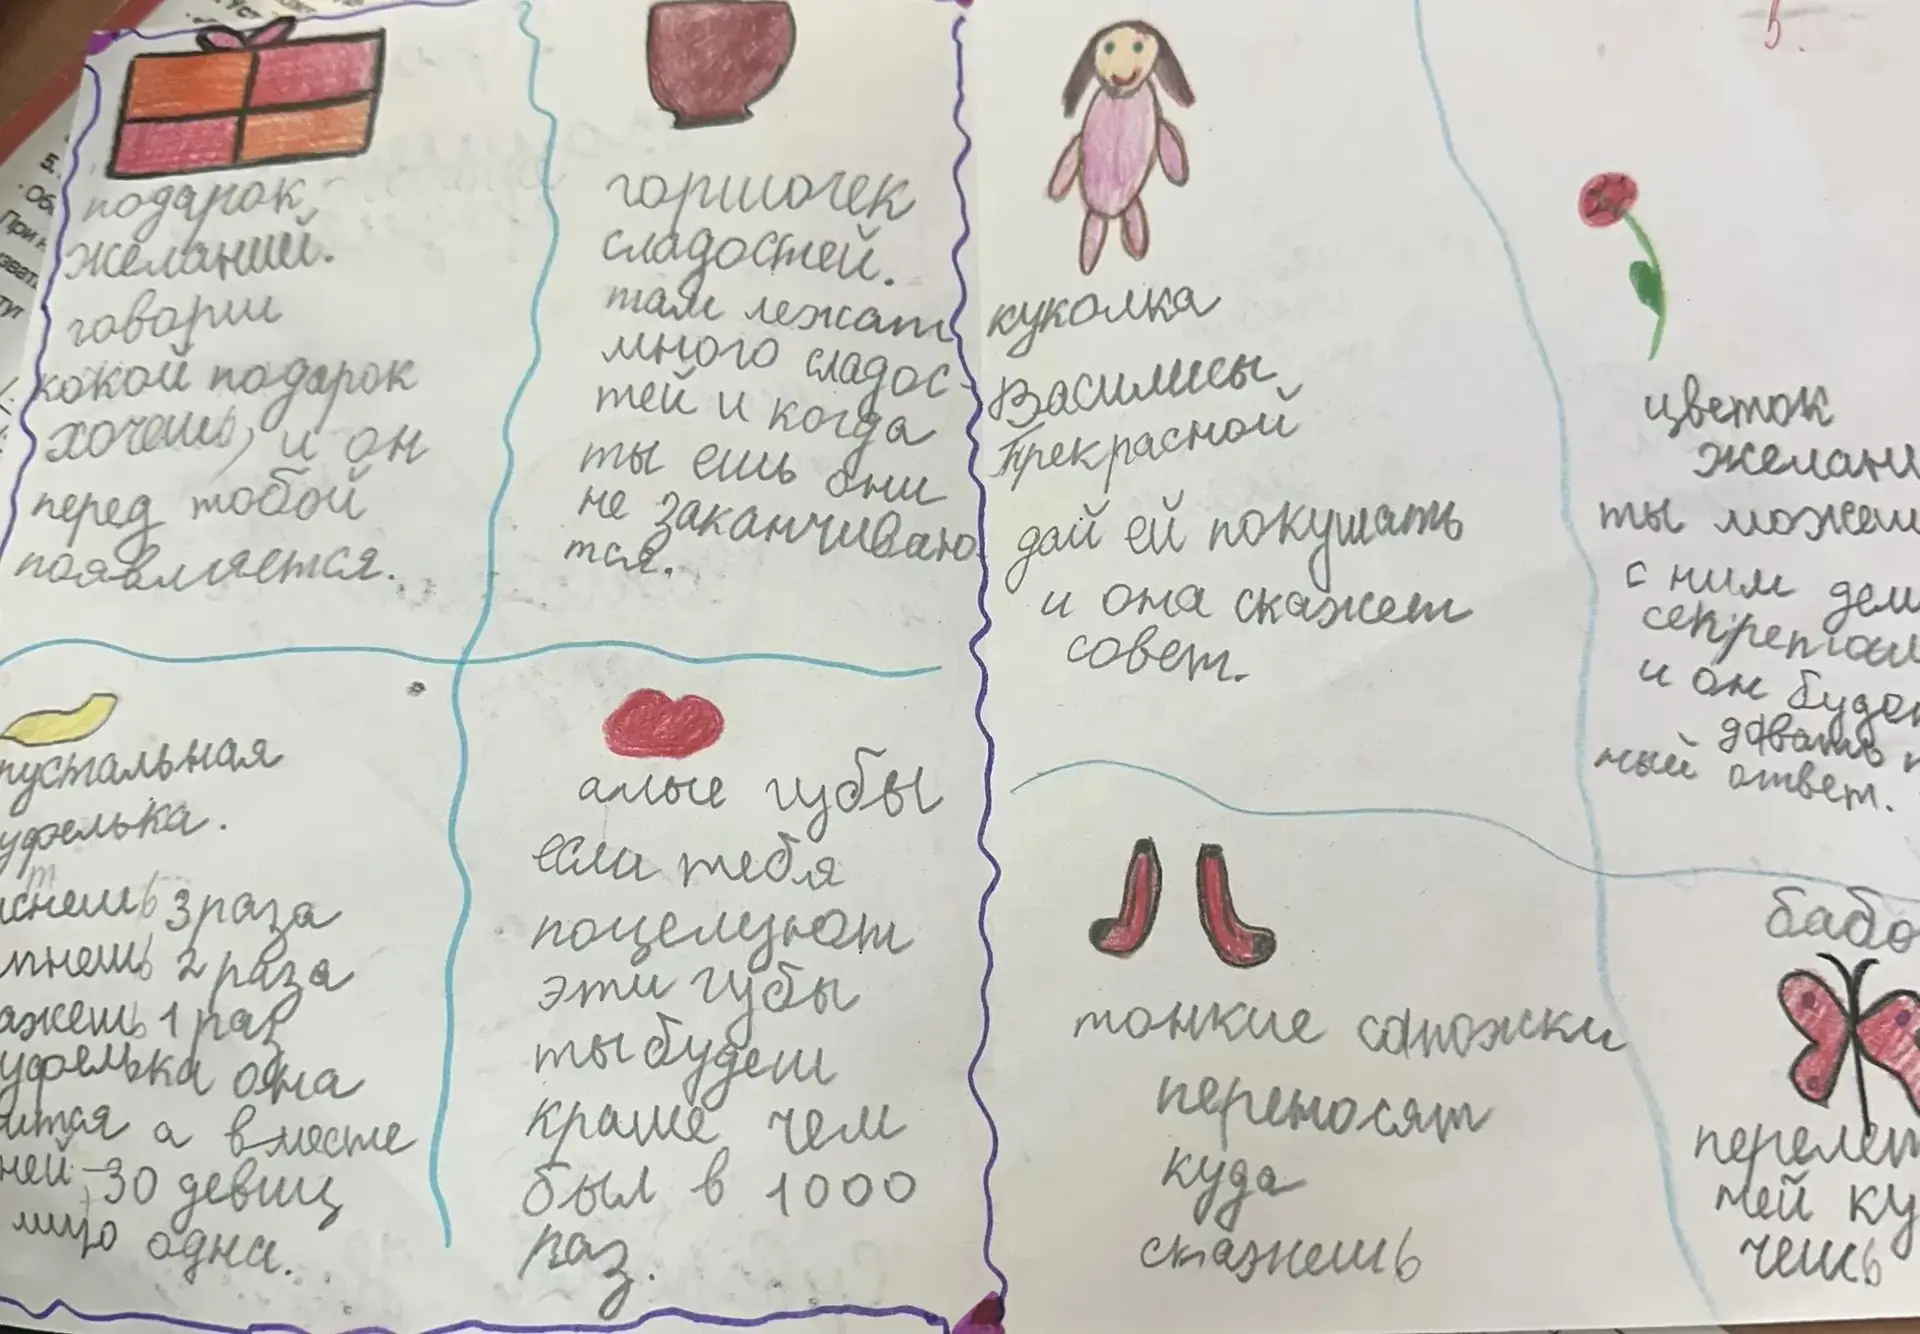 подарок
желаний.
говориш
кокой подарок
хочешь, и он
перед тобой
появляется.
горшочек
сладостей.
там лежат
много сладос-
тей и когда
ты ешь они
не заканчиваю
тся.
куколка
Василисы
Прекрасной
дай ей покушать
и она скажет
совет.
цветок
желан
ты можеш
с ним дел
секретам
и он будет
давать
ный ответ.
пустальная
уфелька.
снешь 3 раза
пнешь 2 раза
ажешь 1 раз
уфелька одна
ится а вместе
ней 30 девиц
лицо одна.
алые губы
если тебя
поцелуют
эти губы
ты будеш
краше чем
был в 1000
раз.
тонкие сапожки
переносят
куда
скажешь
бабо
перелет
тей ку
чешь
5.
Об
При